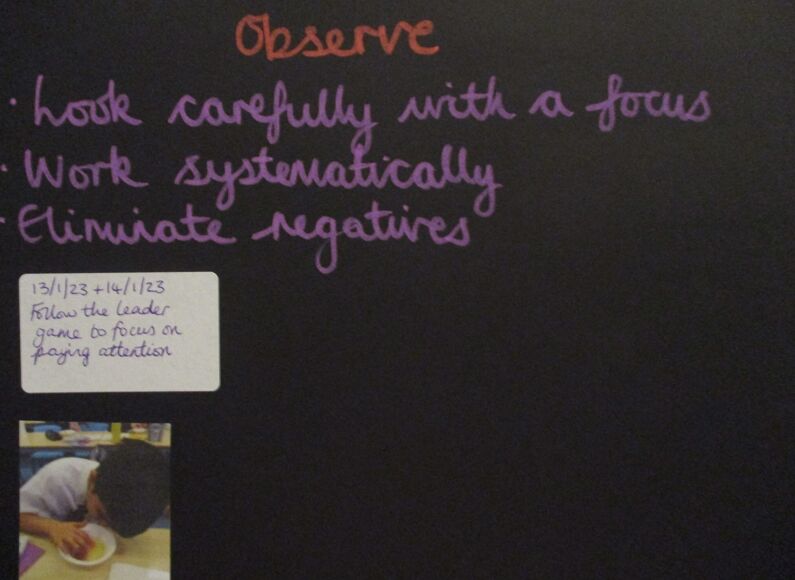 Observe
· Look carefully with a focus
· Work systematically
· Eliminate negatives
13/1/23 + 14/1/23
Follow the leader
game to focus on
paying attention